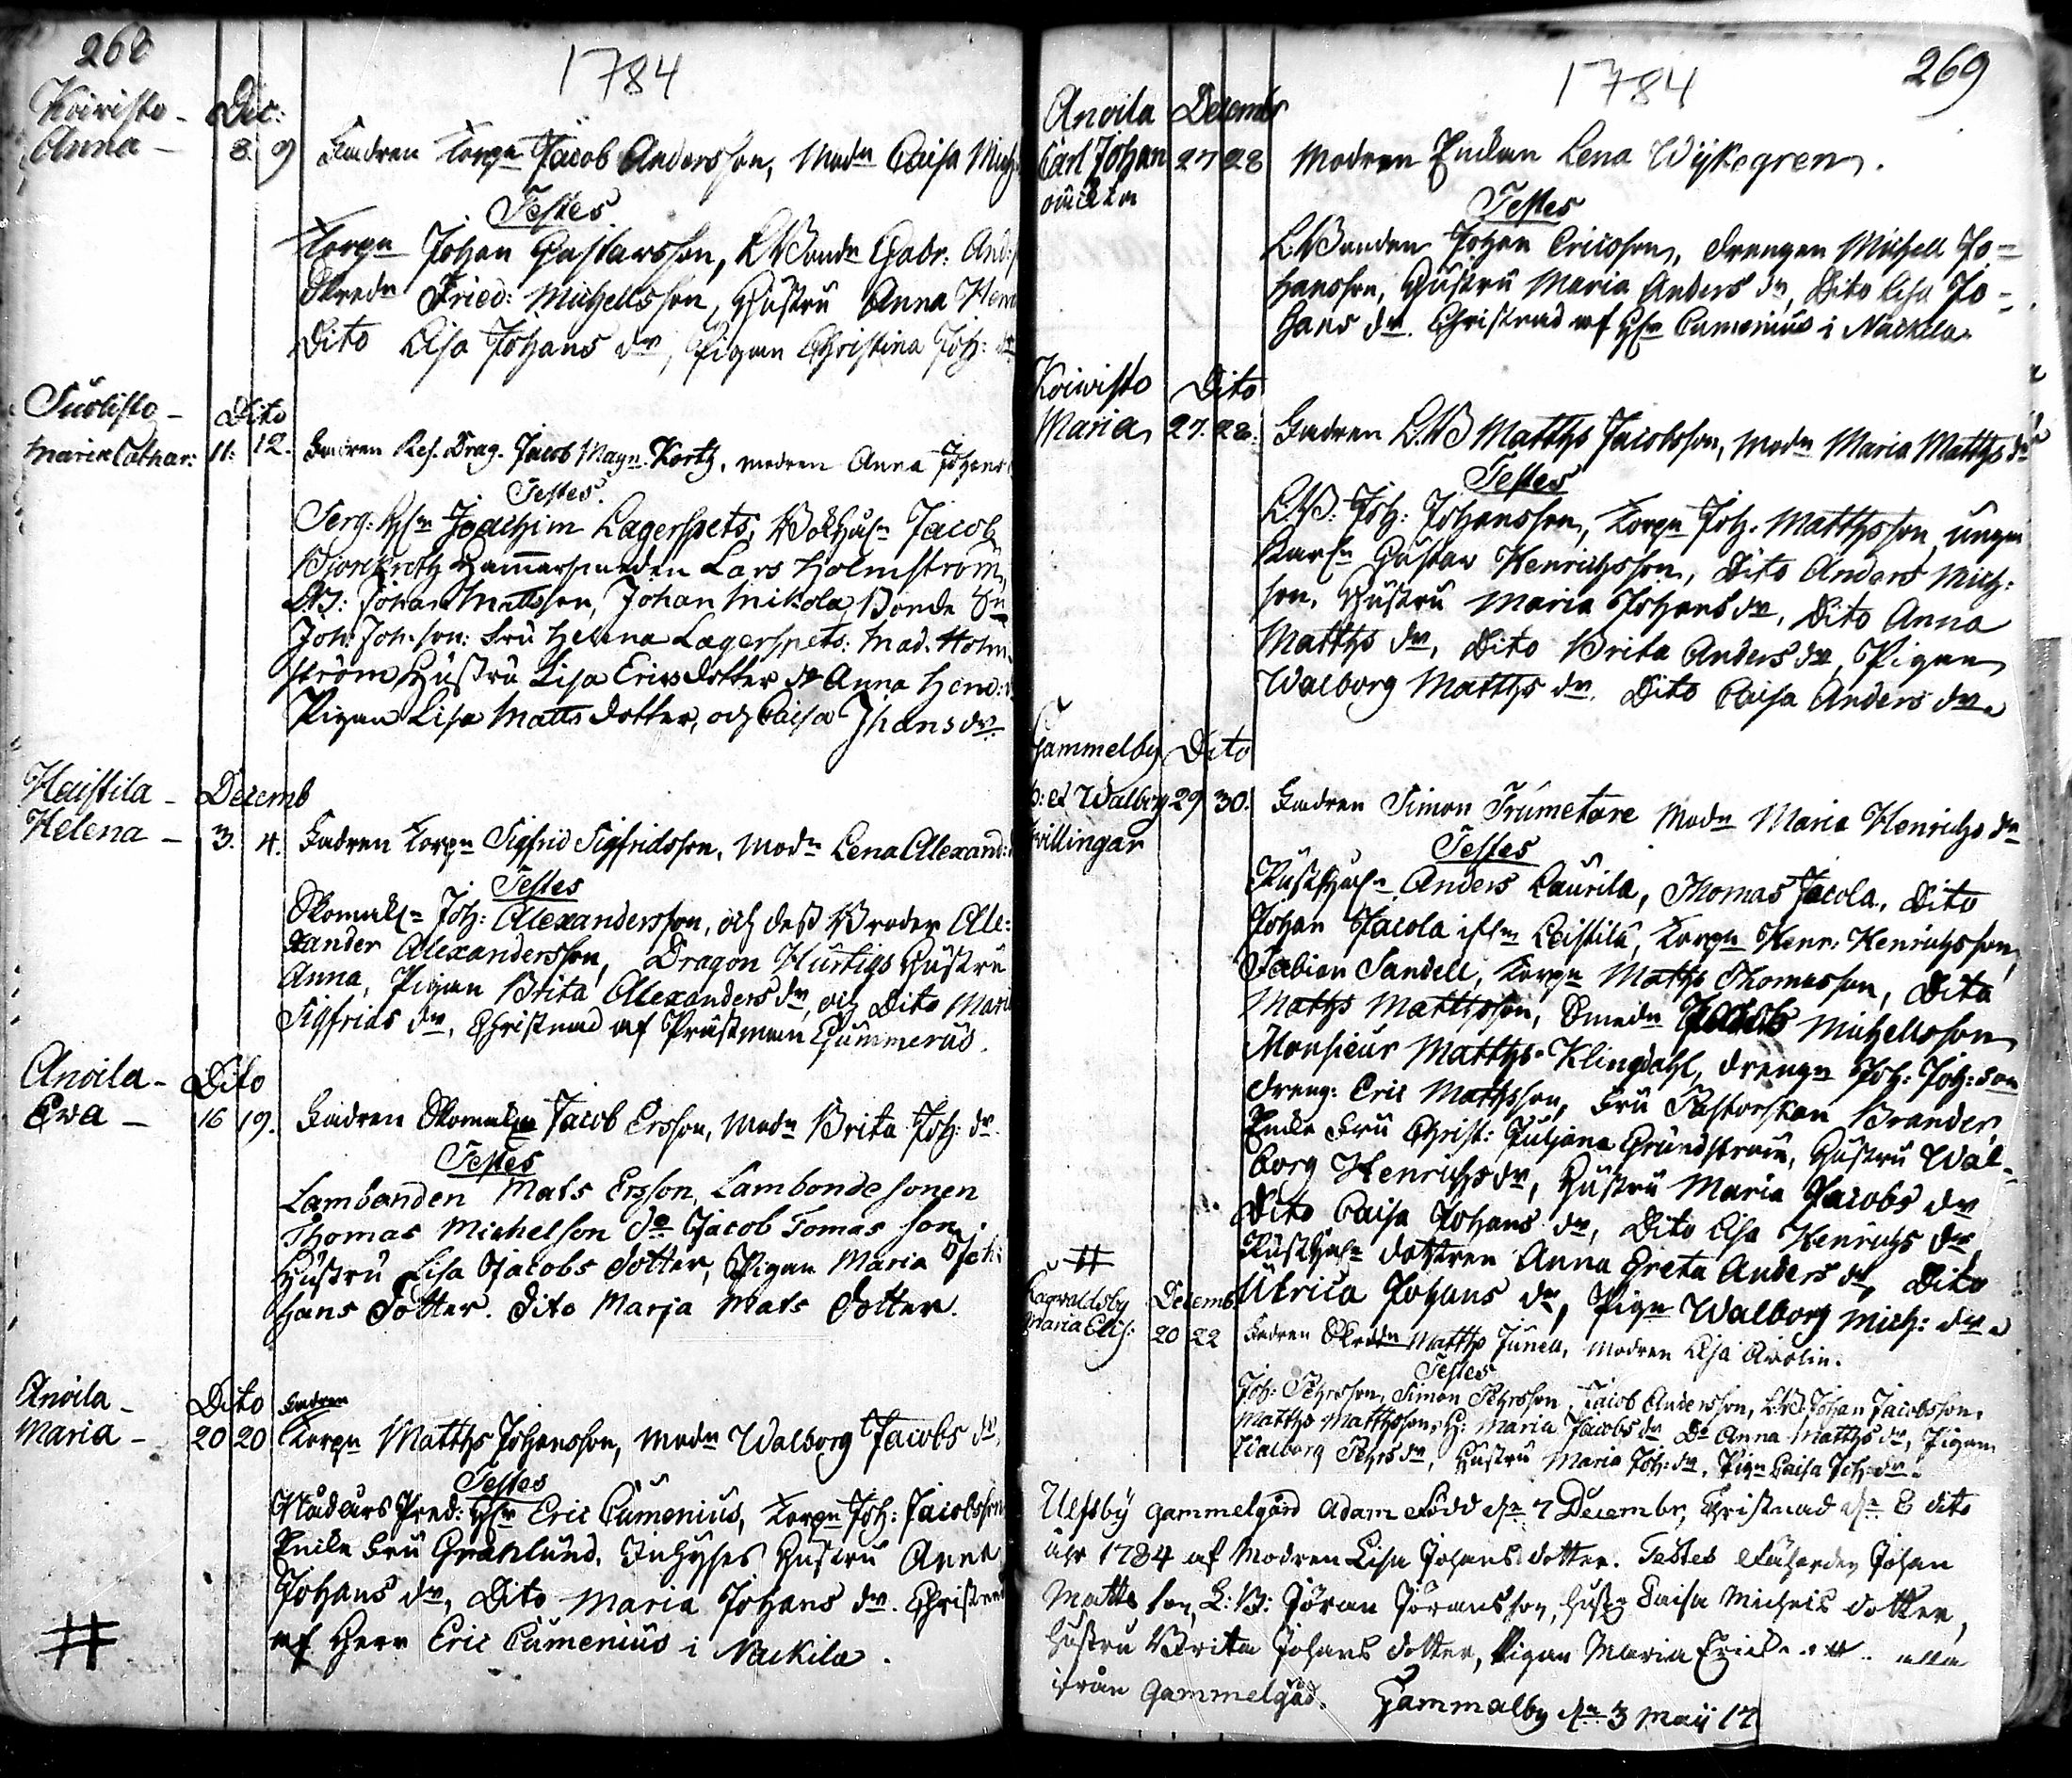 268
1784
Koivisto - Dec:
Anna - 8. 9 Fadren Torpn Jacob Andersson, Modn Caisa Mich
Testes
Torpn Johan Gustavsson, LBondn Gabr: And:
Skredn Fried: Michellsson, Hustru Anna Hen
Dito Lisa Johans dr, Pigan Christina Joh: dr
Suolisto - Dito
Maria Cathar: 11. 12. Fadren Res. Drag. Jacob Magn. Kortz, modren Anna Johans
Testes.
Serg: Hr Joachim Lagerspets, Bokhn Jacob
Biorkroth Hammarsmeden Lars Holmström,
LB: Johan Mattsson, Johan Mikola, Bonde Sn
Joh: Joh:son: Fru Helena Lagerspets: Mad. Holm-
ström, Hustru Lisa Ericsdotter do Anna Hend:
Pigan Lisa Matts dotter, och Caisa Jhans dr
Haistila - Decemb
Helena - 3. 4. Fadren Torpn Sigfrid Sigfridsson, Modn Lena Alexand:
Testes
Skomakn Joh: Alexandersson, och dess Broder Ale-
xander Alexandersson, Dragon Hurtigs Hustru
Anna, Pigan Brita Alexanders dr, och Dito Mari
Sigfrids dr, Christnad af Prästman Gummerus.
Anoila - Dito
Ewa - 16 19. Fadren Skomakn Jacob Ersson, Modn Brita Joh: dr
Testes
Lambonden Mats Ersson, Lambondesonen
Thomas Michelson do Jacob Tomas son.
Hustru Lisa Jacobs dotter, Pigan Maria Joh:
hans dotter. Dito Marja Mats dotter.
Anoila - Dito Fadren
Maria - 20 20 Torpn Matths Johansson, Modn Walborg Jacobs dr,
Testes
Nådårs Pred: Hr Eric Cumenius, Torpn Joh: Jacobsson
Enka Fru Granlund, Inhyses Hustru Anna
Johans dr, Dito Maria Johans dr. Christnad
af Herr Eric Cumenius i Nackila.
#
1784
269
Anoila December
Carl Johan 27 28 Modren Enkan Lena Wijkegren.
oäckta
Testes
LBonden Johan Ericsson, Drengen Michell Jo-
hansson, Hustru Maria Anders dr, Dito Lisa Jo-
hans dr. Christnad af Hr Cumenius i Nackila
Koivisto Dito
Maria 27. 28. Fadren LB Matths Jacobsson, Modn Maria Matths dr
Testes
LB. Joh: Johansson, Torpn Joh. Matthsson, unge
Karln Gustav Henrichsson, Dito Anders Mich:
son, Hustru Maria Johans dr, Dito Anna
Matths dr, Dito Brita Anders dr, Pigan
Walborg Matths dr. Dito Caisa Anders dr.
Gammelby Dito
et Walborg 29 30. Fadren Simon Trumetare Modn Maria Henrichs dr
Tvillingar
Testes
Rusthn Anders Laurila, Thomas Jacola, Dito
Johan Jacola Leistilä, Torpn Henr: Henrichsson,
Fabian Sandell, Torpn Matths Thomasson, Dito
Matths Matthsson, Smedn Jacob Michellsson
Monsieur Matths Klingdahl, Drengn Joh: Joh:son
Dreng: Eric Matthsson, Fru Pastorskan Brander,
Enke Fru Christ: Juliana Grundstroem, Hustru Wal-
borg Henrichs dr, Hustru Maria Jacobs dr
Dito Caisa Johans dr, Dito Lisa Henrichs dr,
Rusthn dottren Anna Greta Anders dr, Dito
Ulrica Johans dr, Pign Walborg Mich: dr.
#
Ragvaldsby Decemb
Maria Elis: 20 22 Fadren Skredn Matths Junell, Modren Lisa Avolin.
Testes
Joh: Pehrsson, Simon Pehrsson, Jacob Andersson, LB. Johan Jacobsson,
Matths Matthsson, H: Maria Jacobs dr Do Anna Matths dr, Pigan
Walborg Pehrs dr, Hustru Maria Joh: dr, Pign Caisa Joh: dr.
Ulfsby Gammelgård Adam Född dn 7 Decembr, Christnad dn 8 dito
åhr 1784 af Modren Lisa Johansdotter. Testes Johan
Matts son, L: B: Jöran Jöransson, Hustr Caisa Michels dotter,
Hustru Brita Johans dotter, Pigan Maria Erics alla
ifrån Gammelgåd. Gammalby dn 3 Maij 17